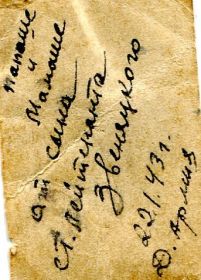 папаше
и
Мамаше
от сына
ст. лейтенанта
Звенацкого
22.1.43 г.
Д. армия